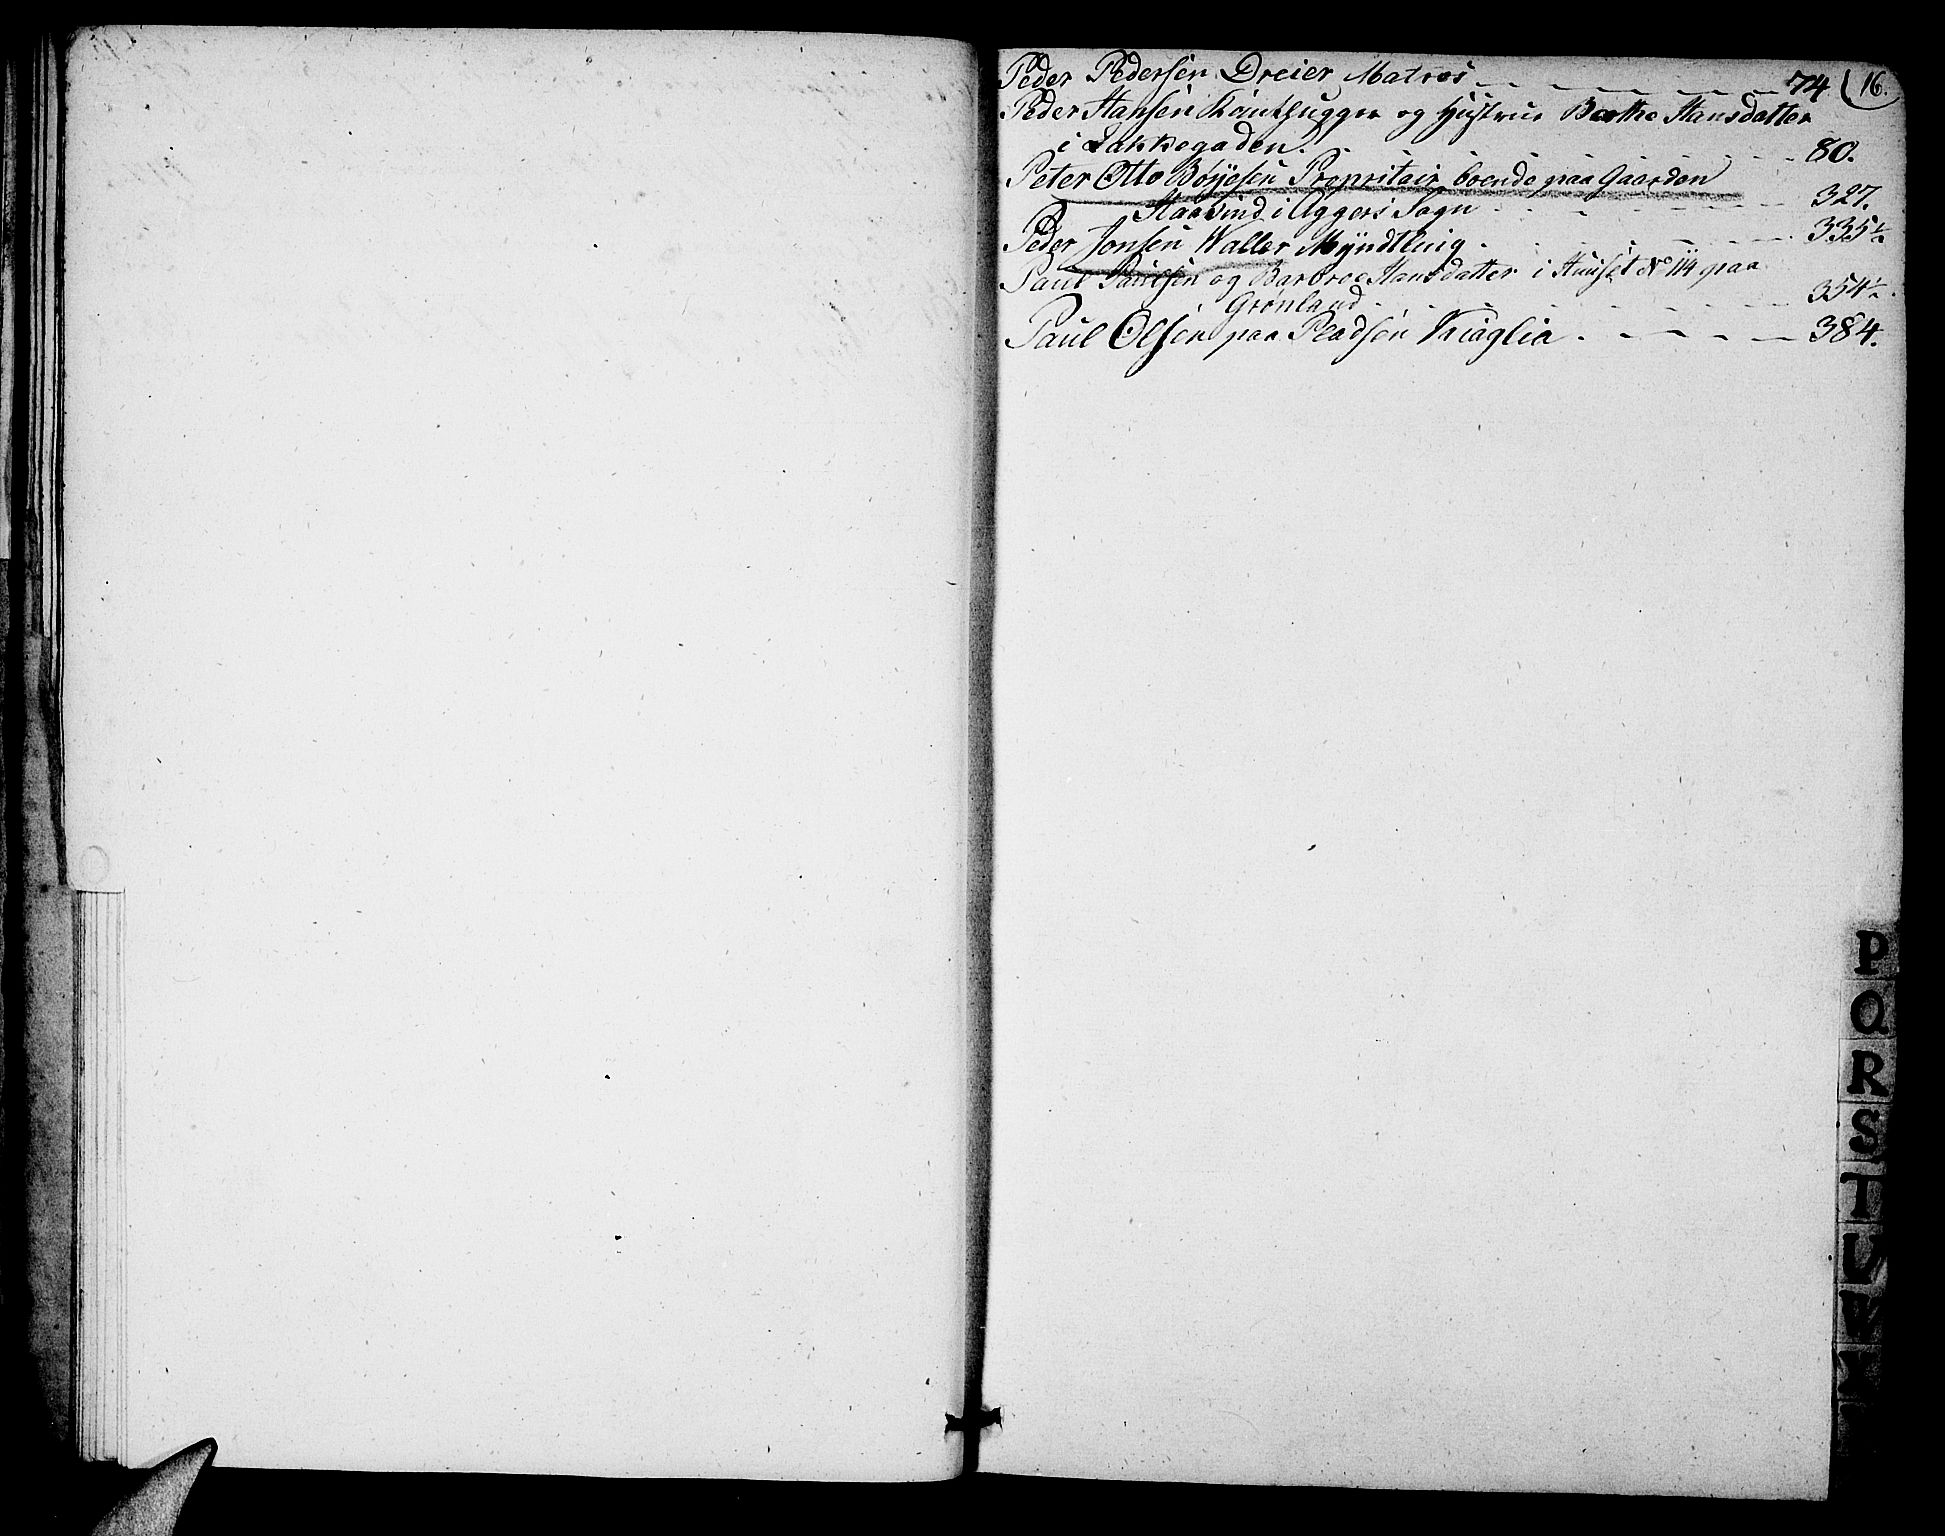 Peder Pedersen Dreier Matros 74 16.
Peder Hansen og Hustrue Berthe Hansdatter
i Lakkegaden. 80.
Peter Otto Böyesen Propritair boende paa Gaarden
i Aggers Sogn 327.
Peder Jonsen Waller Myndtling 335½
Paul Paulsen og Barbroe Hansdatter i Huuset No 114 paa
Grønland 354½.
Paul Olsen paa Pladsen Kraglia 384.
P
Q
R
S
T
U
W